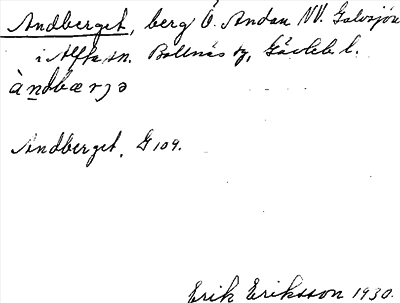 Andberget, berg Ö. Andan NV. Galvsjön
i Alfta sn. Bollnäs tg, Gävleb l.
àndbærjə
Andberget, G 109.
Erik Eriksson 1930.